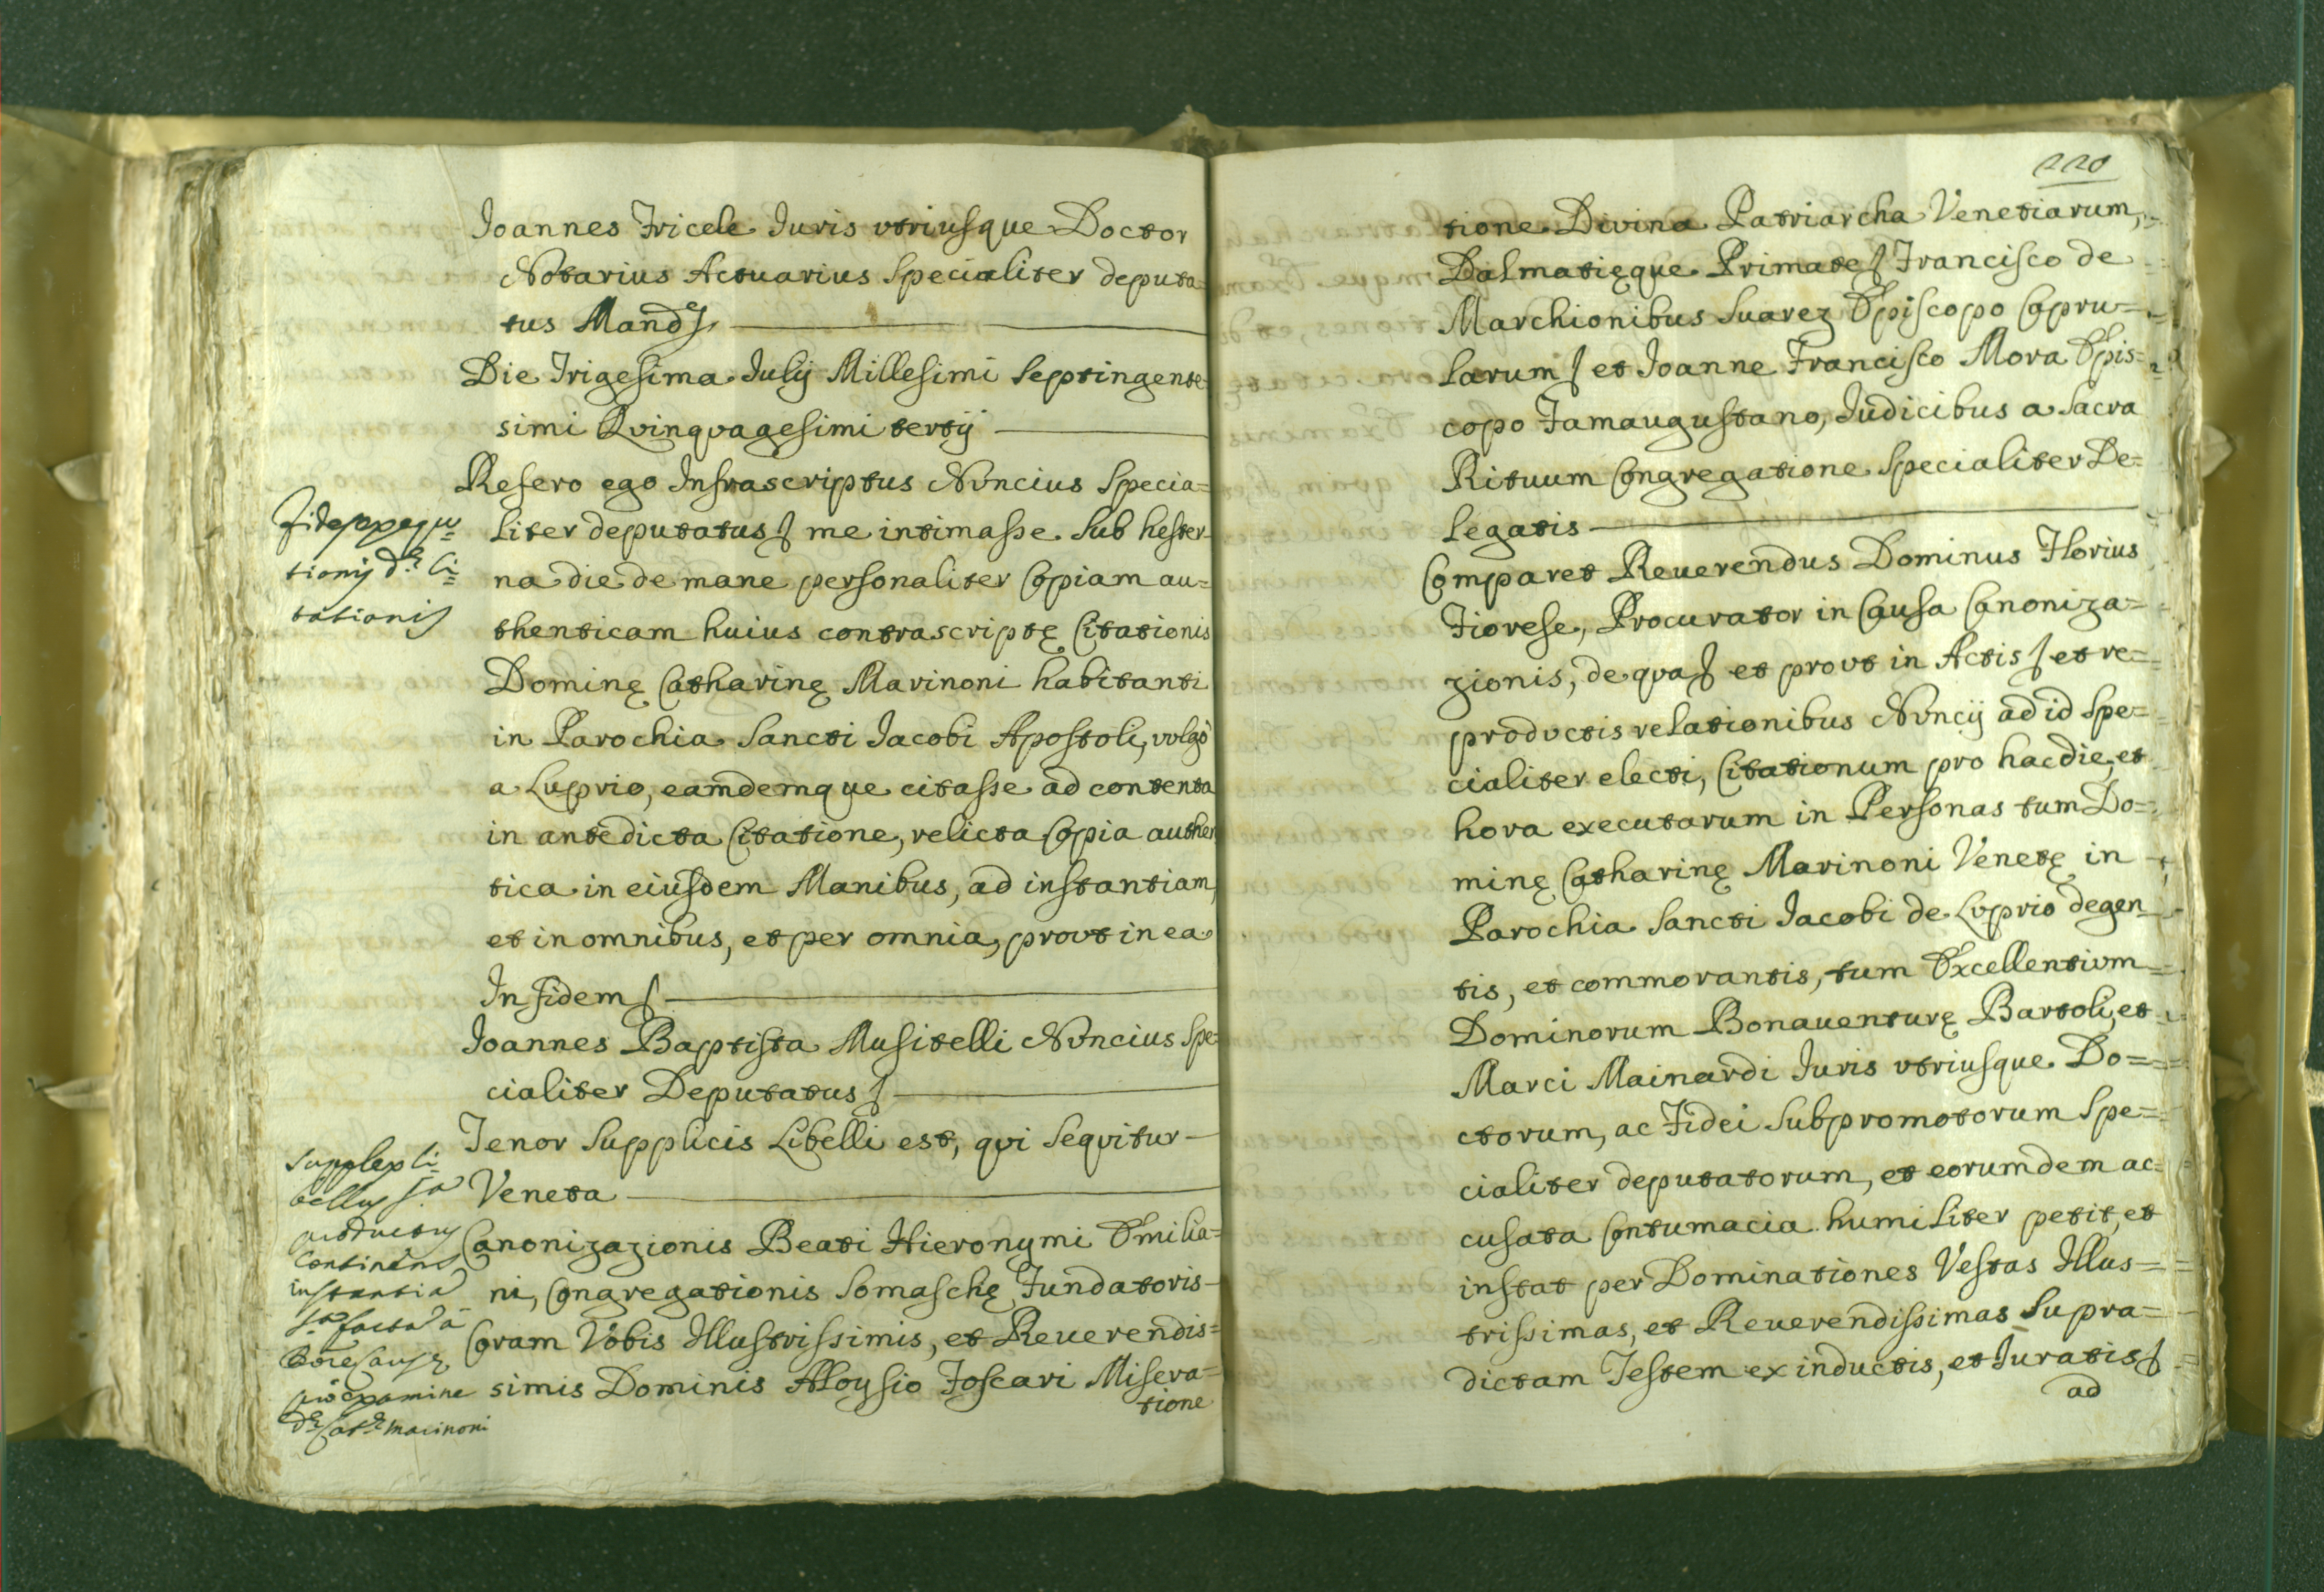 Joannes Tricele Juris vtriusque Doctor
Notarius Actuarius Specialiter deputa-
tus Mand.
Die Trigesima Julij Millesimi Septingente-
simi Qvinqvagesimi tertij
Refero ego Infrascriptus Nvncius Specia=
liter deputatus me intimasse sub hester-
na die de mane personaliter Copiam au=
thenticam huius contrascriptę Citationis
Dominę Catharinę Marinoni habitanti
in Parochia Sancti Jacobi Apostoli, vvlgò
a Luprio, eamdemque citasse ad contenta
in antedicta Citatione, relicta Copia authen
tica in eiusdem Manibus, ad instantiam,
et in omnibus, et per omnia, provt in ea
In fidem
Joannes Baptista Musitelli Nvncius Spe-
cialiter Deputatus
Tenor Supplicis Libelli est, qvi seqvitur
Veneta
Canonizazionis Beati Hieronymi Emilia=
ni, Congregationis Somaschę Fundatoris
Coram Vobis Illustrissimis, et Reuerendis=
simis Dominis Aloysio Foscari Misera=
tione
Fides exequu=
tionis dę Ci=
tationis
Supplex li=
bellus
productus
Continens
instantia
facta à
pro examine
dę Cat.ę Marinoni
220
tione Divina Patriarcha Venetiarum,
Dalmatięque Primate Francisco de
Marchionibus Suarez Episcopo Capru=
larum et Joanne Francisco Mora Epis=
copo Famaugustano, Judicibus a Sacra
Rituum Congregatione Specialiter De=
legatis
Comparet Reuerendus Dominus Florius
Fiorese, Procurator in Causa Canoniza=
zionis, de qva et provt in Actis et re=
prodvctis relationibus Nvncij ad id Spe=
cialiter electi, Citationum pro hac die, et
hora executarum in Personas tum Do=
minę Catharinę Marinoni Venetę in
Parochia Sancti Jacobi de Lvprio degen
tis, et commorantis, tum Excellentivm
Dominorum Bonauenturę Bartoli, et
Marci Mainardi Juris vtriusque Do=
ctorum, ac Fidei Subpromotorum Spe=
cialiter deputatorum, et eorumdem ac=
cusata Contumacia humiliter petit, et
instat per Dominationes Vestas Illus=
trissimas, et Reuerendissimas Supra=
dictam Testem ex inductis, et Juratis
ad